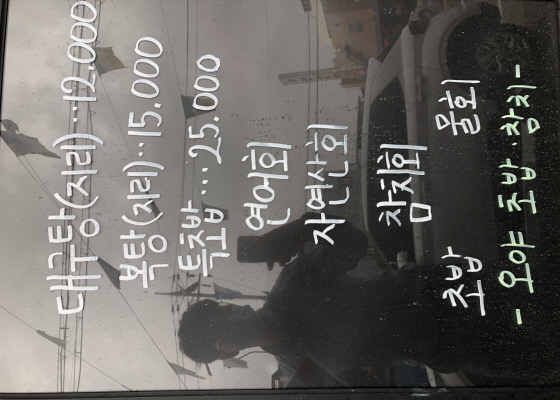 대구탕(지리)··12.000
복탕(지리)··15.000
특초밥···25.000
연어회
자연산회
참치회
초밥 물회
- 오야 초밥·참치 -